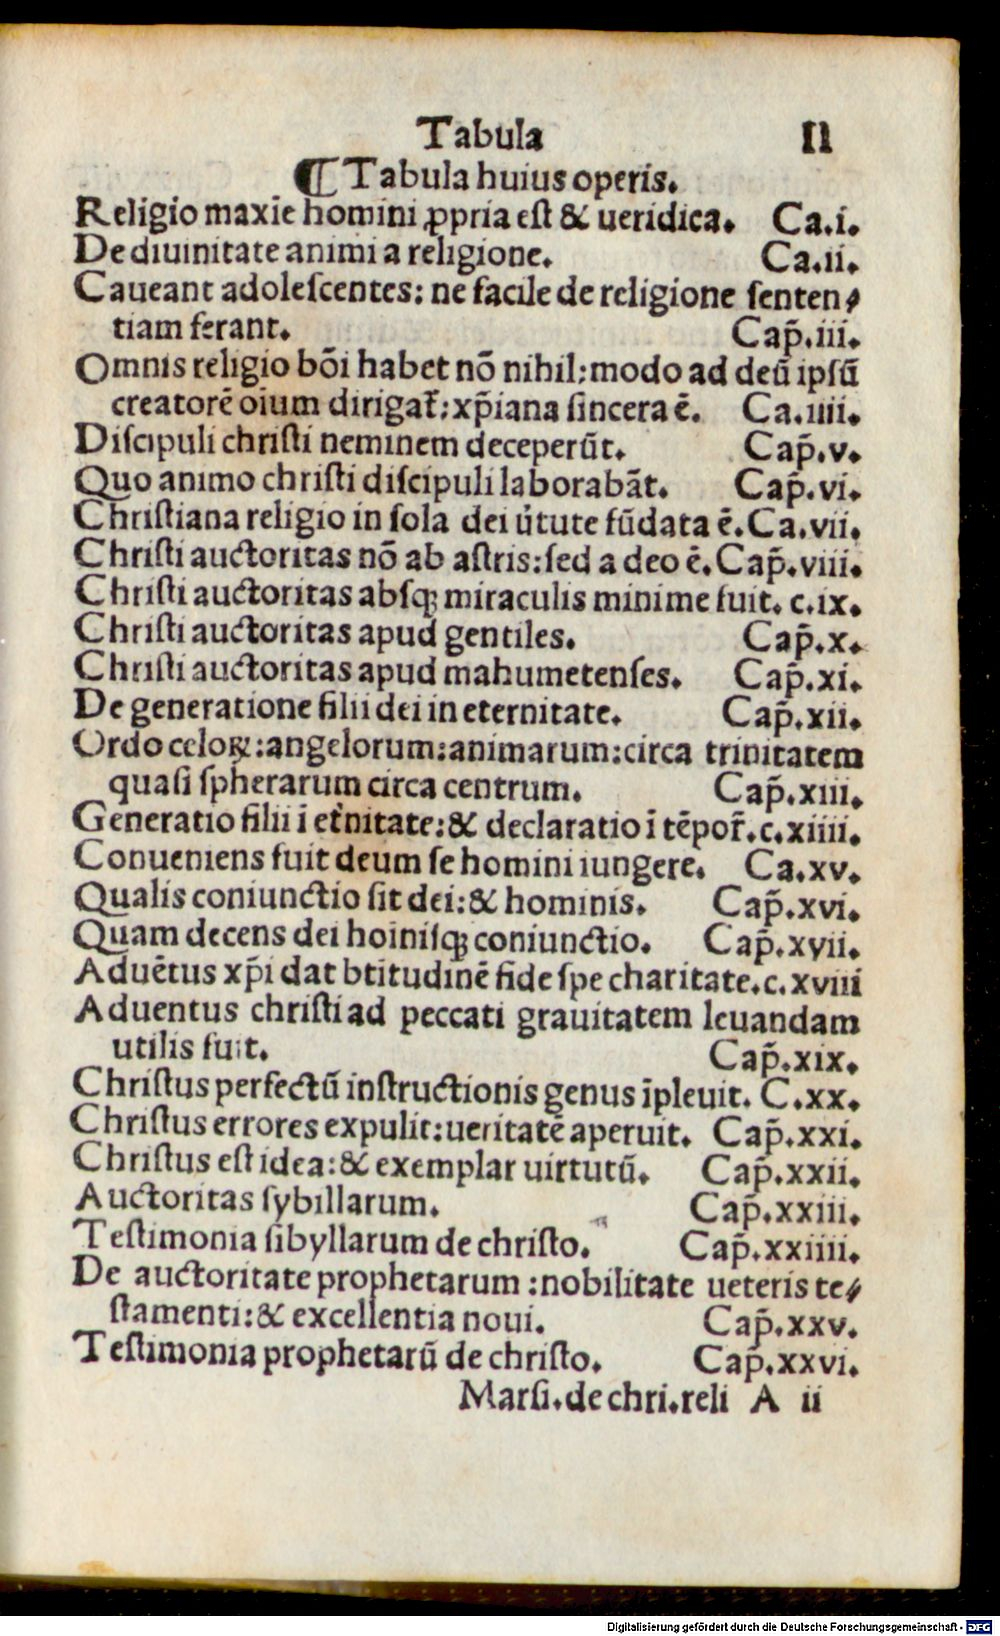 Tabula II
¶Tabula huius operis.
Religio maxīe homini ꝓpria eſt & ueridica. Ca.i.
De diuinitate animi a religione. Ca.ii.
Caueant adoleſcentes: ne facile de religione ſenten⸗
tiam ferant. Cap̃.iii.
Omnis religio bōi habet nō nihil:modo ad deū ipſū
creatorē oīum dirigat᷑:xp̃iana ſincera ē. Ca.iiii.
Diſcipuli chriſti neminem deceperūt. Cap̃.v.
Quo animo chriſti diſcipuli laborabāt. Cap̃.vi.
Chriſtiana religio in ſola dei u̓tute fūdata ē.Ca.vii.
Chriſti auctoritas nō ab aſtris:ſed a deo ē.Cap̃.viii.
Chriſti auctoritas abſqꝫ miraculis minime fuit. c.ix.
Chriſti auctoritas apud gentiles. Cap̃.x.
Chriſti auctoritas apud mahumetenſes. Cap̃.xi.
De generatione filii dei in eternitate. Cap̃.xii.
Ordo celoꝝ:angelorum:animarum:circa trinitatem
quaſi ſpherarum circa centrum. Cap̃.xiii.
Generatio filii ī et̓nitate:& declaratio ī tēpor̃.c.xiiii.
Conueniens fuit deum ſe homini iungere. Ca.xv.
Qualis coniunctio ſit dei:& hominis. Cap̃.xvi.
Quam decens dei hoīniſqꝫ coniunctio. Cap̃.xvii.
Aduētus xp̃i dat btītudinē fide ſpe charitate.c.xviii
Aduentus chriſti ad peccati grauitatem leuandam
utilis fuit. Cap̃.xix.
Chriſtus perfectū inſtructionis genus īpleuit. C.xx.
Chriſtus errores expulit:ueritatē aperuit. Cap̃.xxi.
Chriſtus eſt idea:& exemplar uirtutū. Cap̃.xxii.
Auctoritas ſybillarum. Cap̃.xxiii.
Teſtimonia ſibyllarum de chriſto. Cap̃.xxiiii.
De auctoritate prophetarum :nobilitate ueteris te⸗
ſtamenti:& excellentia noui. Cap̃.xxv.
Teſtimonia prophetarū de chriſto. Cap̃.xxvi.
Marſi.de chri.reli A ii
Digitalisierung gefördert durch die Deutsche Forschungsgemeinschaft - DFG